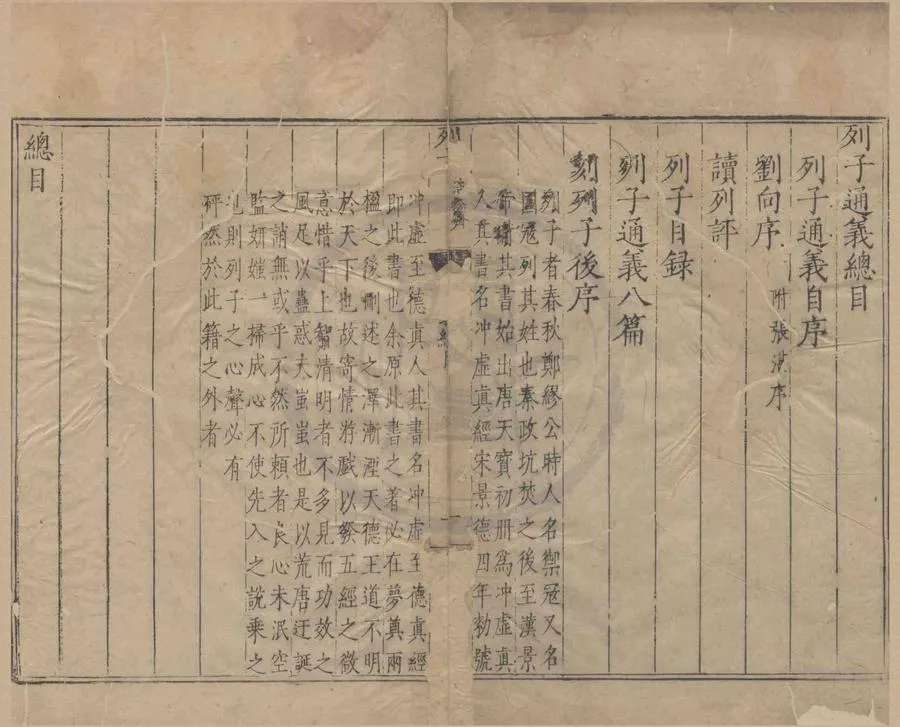 列子通義總目
列子通義自序
劉向序 附張湛序
讀列評
列子目録
列子通義八篇
刻列子後序
列子者春秋鄭繆公時人名禦寇又名
圄寇列其姓也秦政坑焚之後至漢景
帝朝其書始出唐天寶初册為冲虚真
人其書名冲虚真經宋景德四年勅號
列子
總目
一
冲虚至德真人其書名冲虚至德真經
即此書也余原此書之著必在夢奠兩
楹之後刪述之澤漸湮天德王道不明
於天下也故寄情游戲以發五經之微
意惜乎上智清明者不多見而功效之
風足以蠱惑夫蚩蚩也是以荒唐迂誕
之誚無或乎不然所頼者良心未泯空
監妍媸一掃成心不使先入之説乘之
也則列子之心聲必有
砰然於此籍之外者
總目